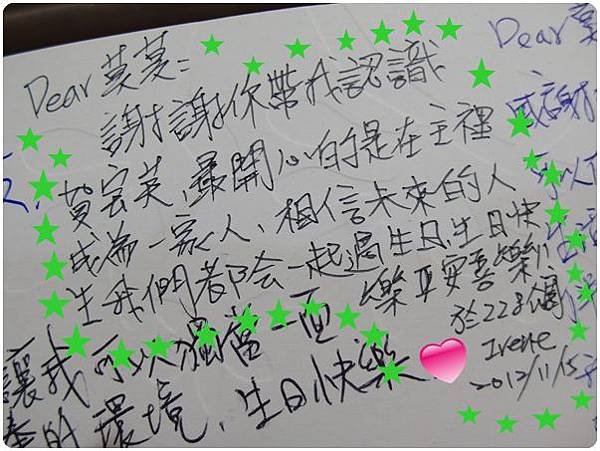 Dear 莫莫:
謝謝你帶我認識
賀宮英,最開心的是在主裡
成為一家人,相信未來的人
生我們都会一起過生日,生日快
樂平安喜樂
於228個
Irene
2012/11/15
Dear
感謝
讓我可以獨當一面
的環境,生日快樂